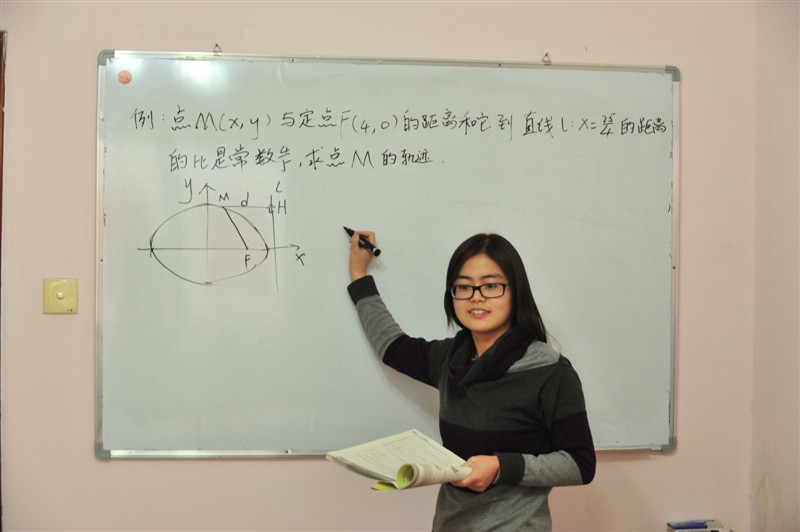 例:点M(x,y)与定点F(4,0)的距离和它到直线l:x=25/4的距离
的比是常数4/5,求点M的轨迹.
y M d L
H
F x